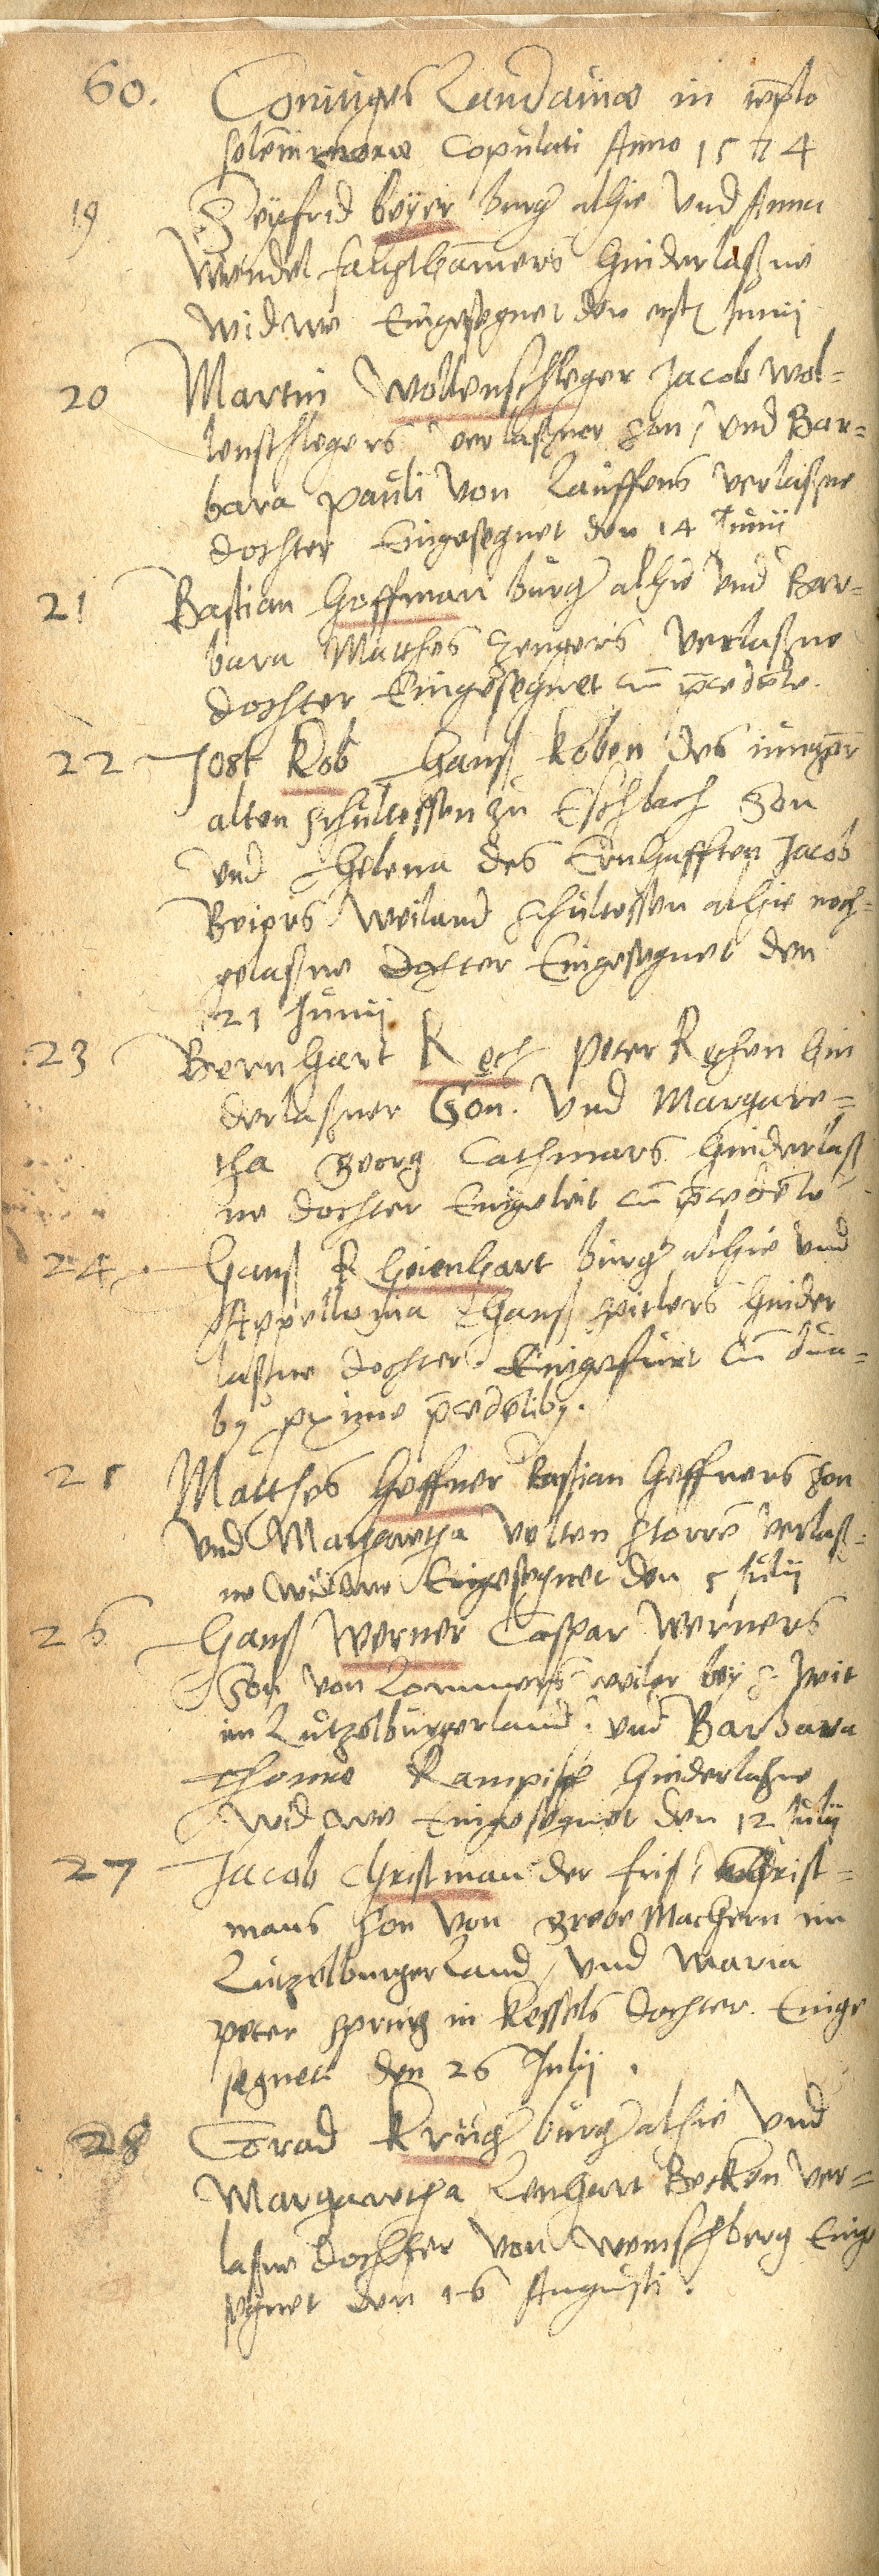 60. Coniuges Landauiæ in templo
solemni more Copulati Anno 1574
19 Seyfrid beyer burger alhie Und Anna
Wendel hinderlaßne
Widwe Eingesegnet den erst Junij
20 Martin Wollenschleger Jacob Wol=
lenschlegers verlaßner son, und Bar=
bara pauli von Lauffens verlaßne
dochter Eingesegnet den 14 Junij
21 Bastian Hoffman burger alhie und Bar=
bara Matthes Zengers verlaßne
dochter Eingesegnet cum præcedente.
22 Jost Kob Hanß Koben des iunger
alten schultessen zu Eschbach Son
und Helena des Ernhafften Jacob
Beiers Weiland schultessen alhie noch=
gelaßne Dochter Eingesegnet den
21 Junij
23 Bernhart Rech Peter Rechen hin
derlaßner Son. Und Margare=
tha Georg Cathmars hinderlaß
ne dochter Eingeleit cum præcedente
24 Hanß Rheienhart burger alhie und
Appellonia Hanß hinder
laßne dochter. Eingefürt cum dua=
by pxime præcedentiby.
25 Matthes Heffner Bastian Heffners son
und Margaretha Velten Storren verlaß=
ne widwe Eingesegnet den 5 Julij
26 Hanß Werner Caspar Werners
Son von Lommersweiler bey S. Veit
im Lutzelburgerland, und Barbara
Thome hinderlaßne
Widwe Eingesegnet den 12 Julij
27 Jacob Christman der frist, Christ=
mans son von Greve Machern im
Lutzelburger Land, und Maria
peter spring in Kessels dochter. Einge
segnet den 26 Julij.
28 Conrad Krug burger alhie Und
Margaretha Lenhart Becken ver=
laßne dochter von Weinsberg Einge
segnet den 16 Augusti.